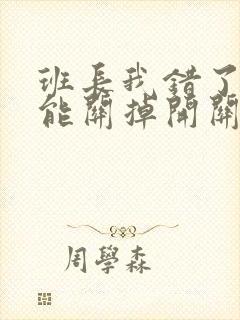 班長我錯了
能關掉開關
周學森